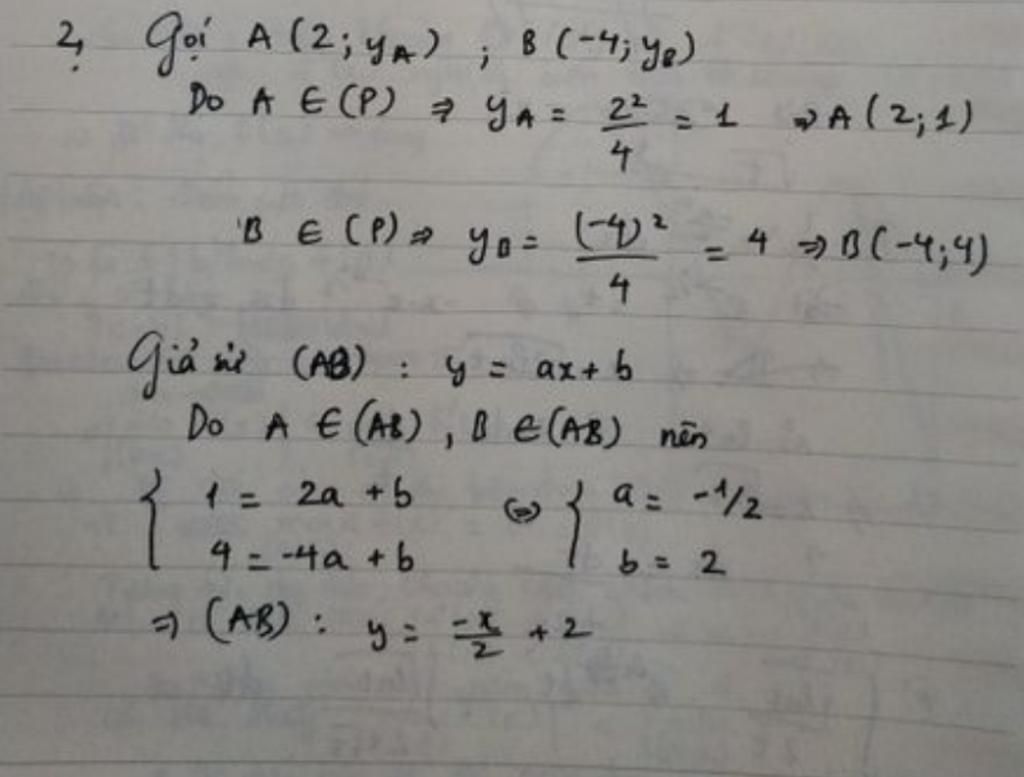 2, Gọi A (2; y_A) ; B (-4; y_B)
Do A ∈ (P) ⇒ y_A = 2²/4 = 1 ⇒ A (2; 1)
B ∈ (P) ⇒ y_B = (-4)²/4 = 4 ⇒ B (-4; 4)
Giả sử (AB) : y = ax + b
Do A ∈ (AB), B ∈ (AB) nên
{ 1 = 2a + b ⇔ { a = -1/2
4 = -4a + b b = 2
⇒ (AB) : y = -x/2 + 2